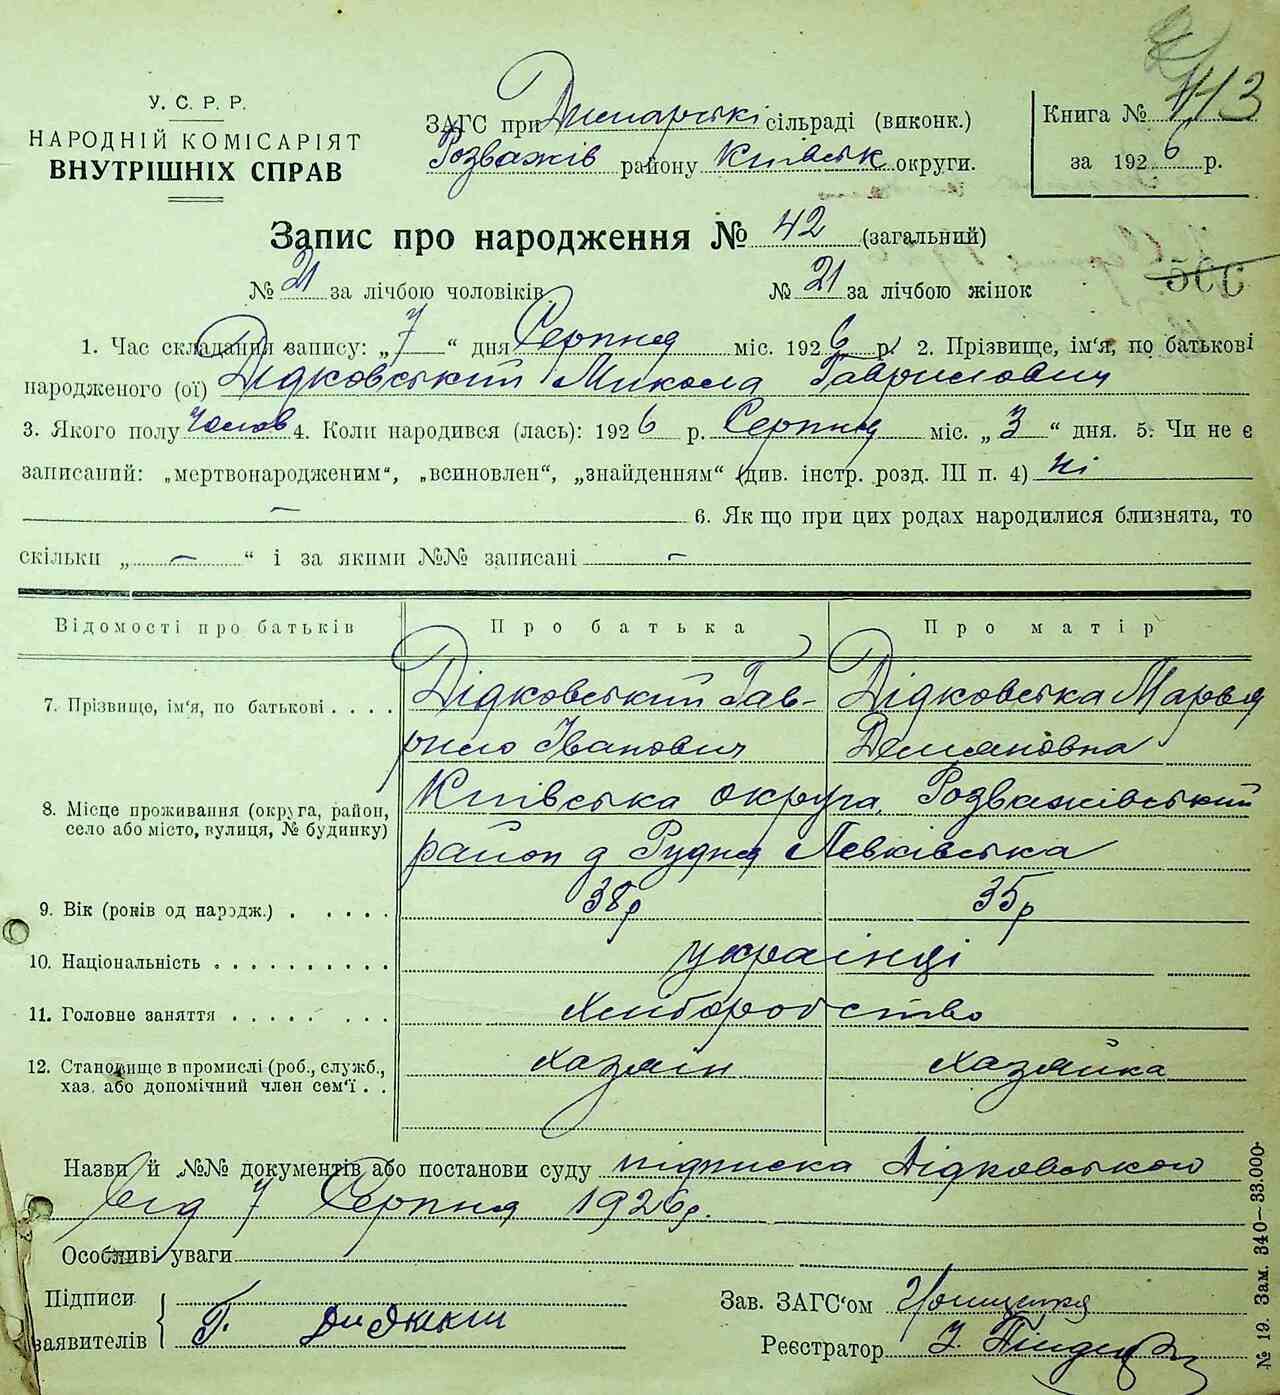 У. С. Р. Р.
НАРОДНІЙ КОМІСАРІЯТ
ВНУТРІШНІХ СПРАВ
ЗАГС при Димарські сільраді (виконк.)
Розважів району Київськ округи.
Книга № 113
за 1926 р.
Запис про народження № 42 (загальний)
№ 21 за лічбою чоловіків
№ 21 за лічбою жінок
500
1. Час складання запису: „7“ дня Серпня міс. 1926 р. 2. Прізвище, ім'я, по батькові
народженого (ої) Дідковський Микола Гаврилович
3. Якого полу Чолов 4. Коли народився (лась): 1926 р. Серпня міс. „3“ дня. 5. Чи не є
записаний: „мертвонародженим“, „всиновлен“, „знайденням“ (див. інстр. розд. III п. 4) ні
— 6. Як що при цих родах народилися близнята, то
скільки „—“ і за якими №№ записані —
Відомості про батьків
Про батька
Про матір
7. Прізвище, ім'я, по батькові . . . .
Дідковський Гав-
рило Іванович
Дідковська Марья
Демяновна
8. Місце проживання (округа, район,
село або місто, вулиця, № будинку)
Київська округа, Розважівський
район д Рудня Левківська
9. Вік (років од народж.) . . . . . 38р 35р
10. Національність . . . . . . . . . . українці
11. Головне заняття . . . . . . . . . хліборобство
12. Становище в промислі (роб., служб.,
хаз. або допомічний член сем'ї . .
хазяїн
хазяйка
Назви й №№ документів або постанови суду підписка Дідковського
від 7 Серпня 1926р.
Особливі уваги
Підписи
заявителів
Г.
Зав. ЗАГС'ом
Реєстратор
№ 19. Зам. 340—33.000